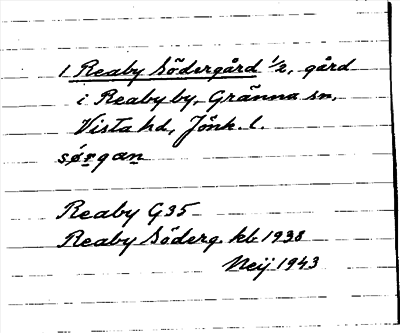 1 Reaby Södergård 1/2, gård
i Reaby by, Gränna sn,
Vista hd, Jönk. l.
sørgan
Reaby G35
Reaby Söderg. kb 1938
Neij 1943